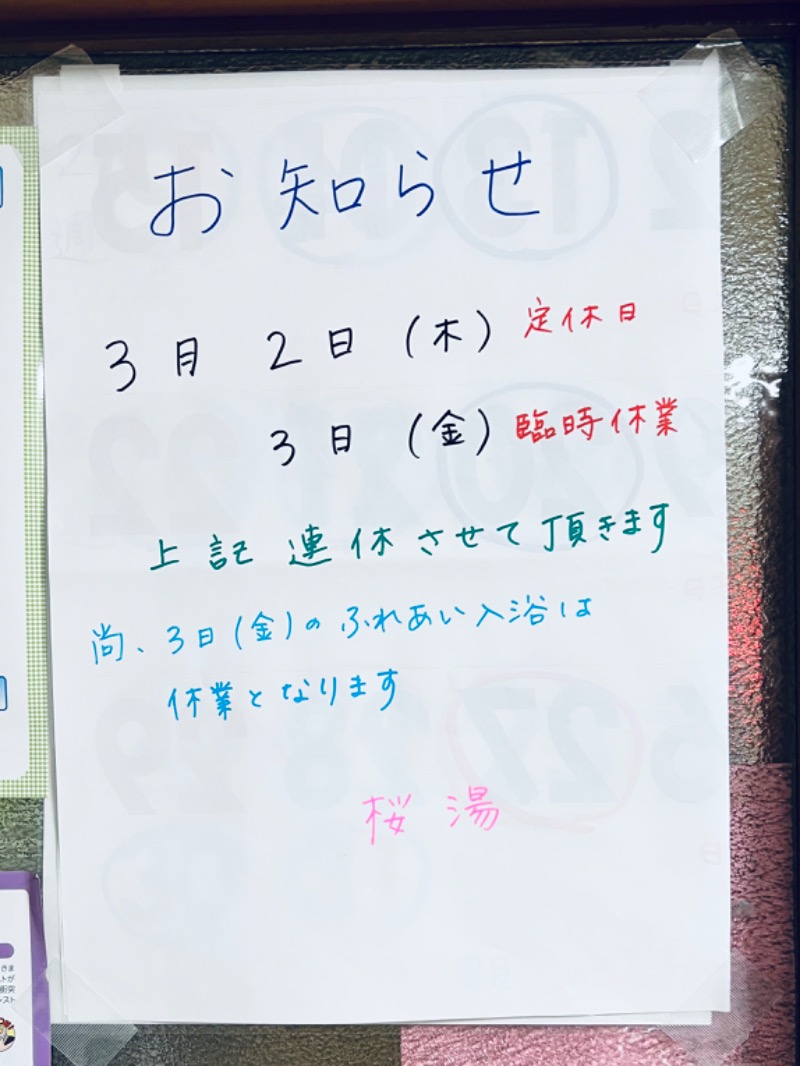 お知らせ
3月 2日 (木) 定休日
3日 (金) 臨時休業
上記 連休させて頂きます
尚、3日(金)のふれあい入浴は
休業となります
桜湯